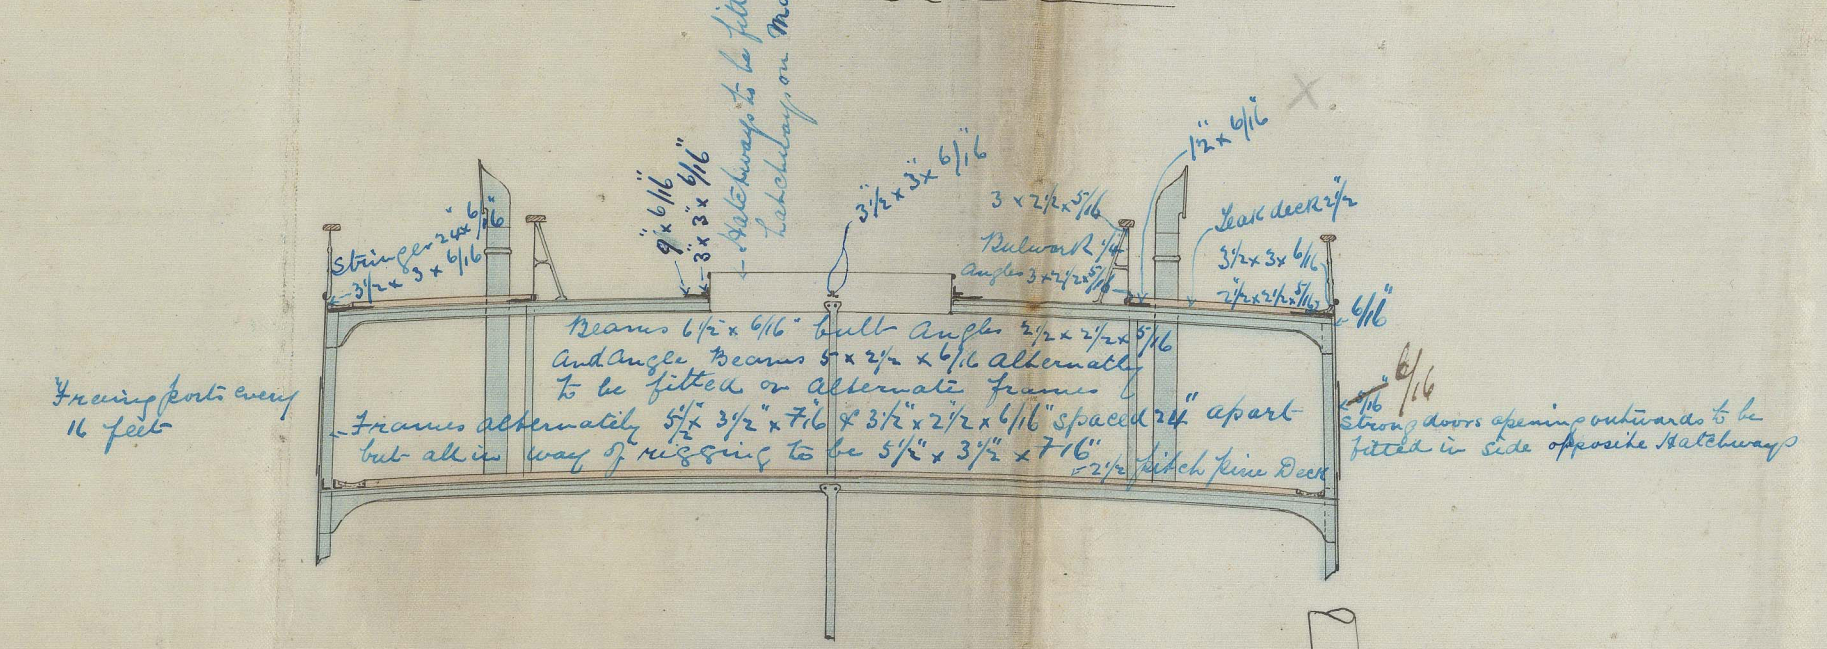 Hatchways to be fit
hatchways on Ma
9" x 6/16"
3" x 3" x 6/16"
3 1/2 x 3" x 6/16"
12" x 6/16"
3 x 2 1/2 x 5/16
Bulwark 1/4
Angles 3 x 2 1/2 x 5/16
Teak deck 2 1/2"
3 1/2 x 3 x 6/16
2 1/2 x 2 1/2 x 5/16
6/16"
Stringer 24 x 6/16"
3 1/2 x 3 x 6/16
Beams 6 1/2 x 6/16" bulb Angles 2 1/2 x 2 1/2 x 5/16
And Angle Beams 5 x 2 1/2 x 6/16 Alternatly
to be fitted on Alternate frames
Frames alternately 5 1/2" x 3 1/2" x 7/16 & 3 1/2" x 2 1/2 x 6/16" spaced 24" apart
but all in way of rigging to be 5 1/2" x 3 1/2" x 7/16"
2 1/2 pitch pine Deck
Freeing ports every
16 feet
6/16
5/16"
Strong doors opening outwards to be
fitted in side opposite Hatchways
X